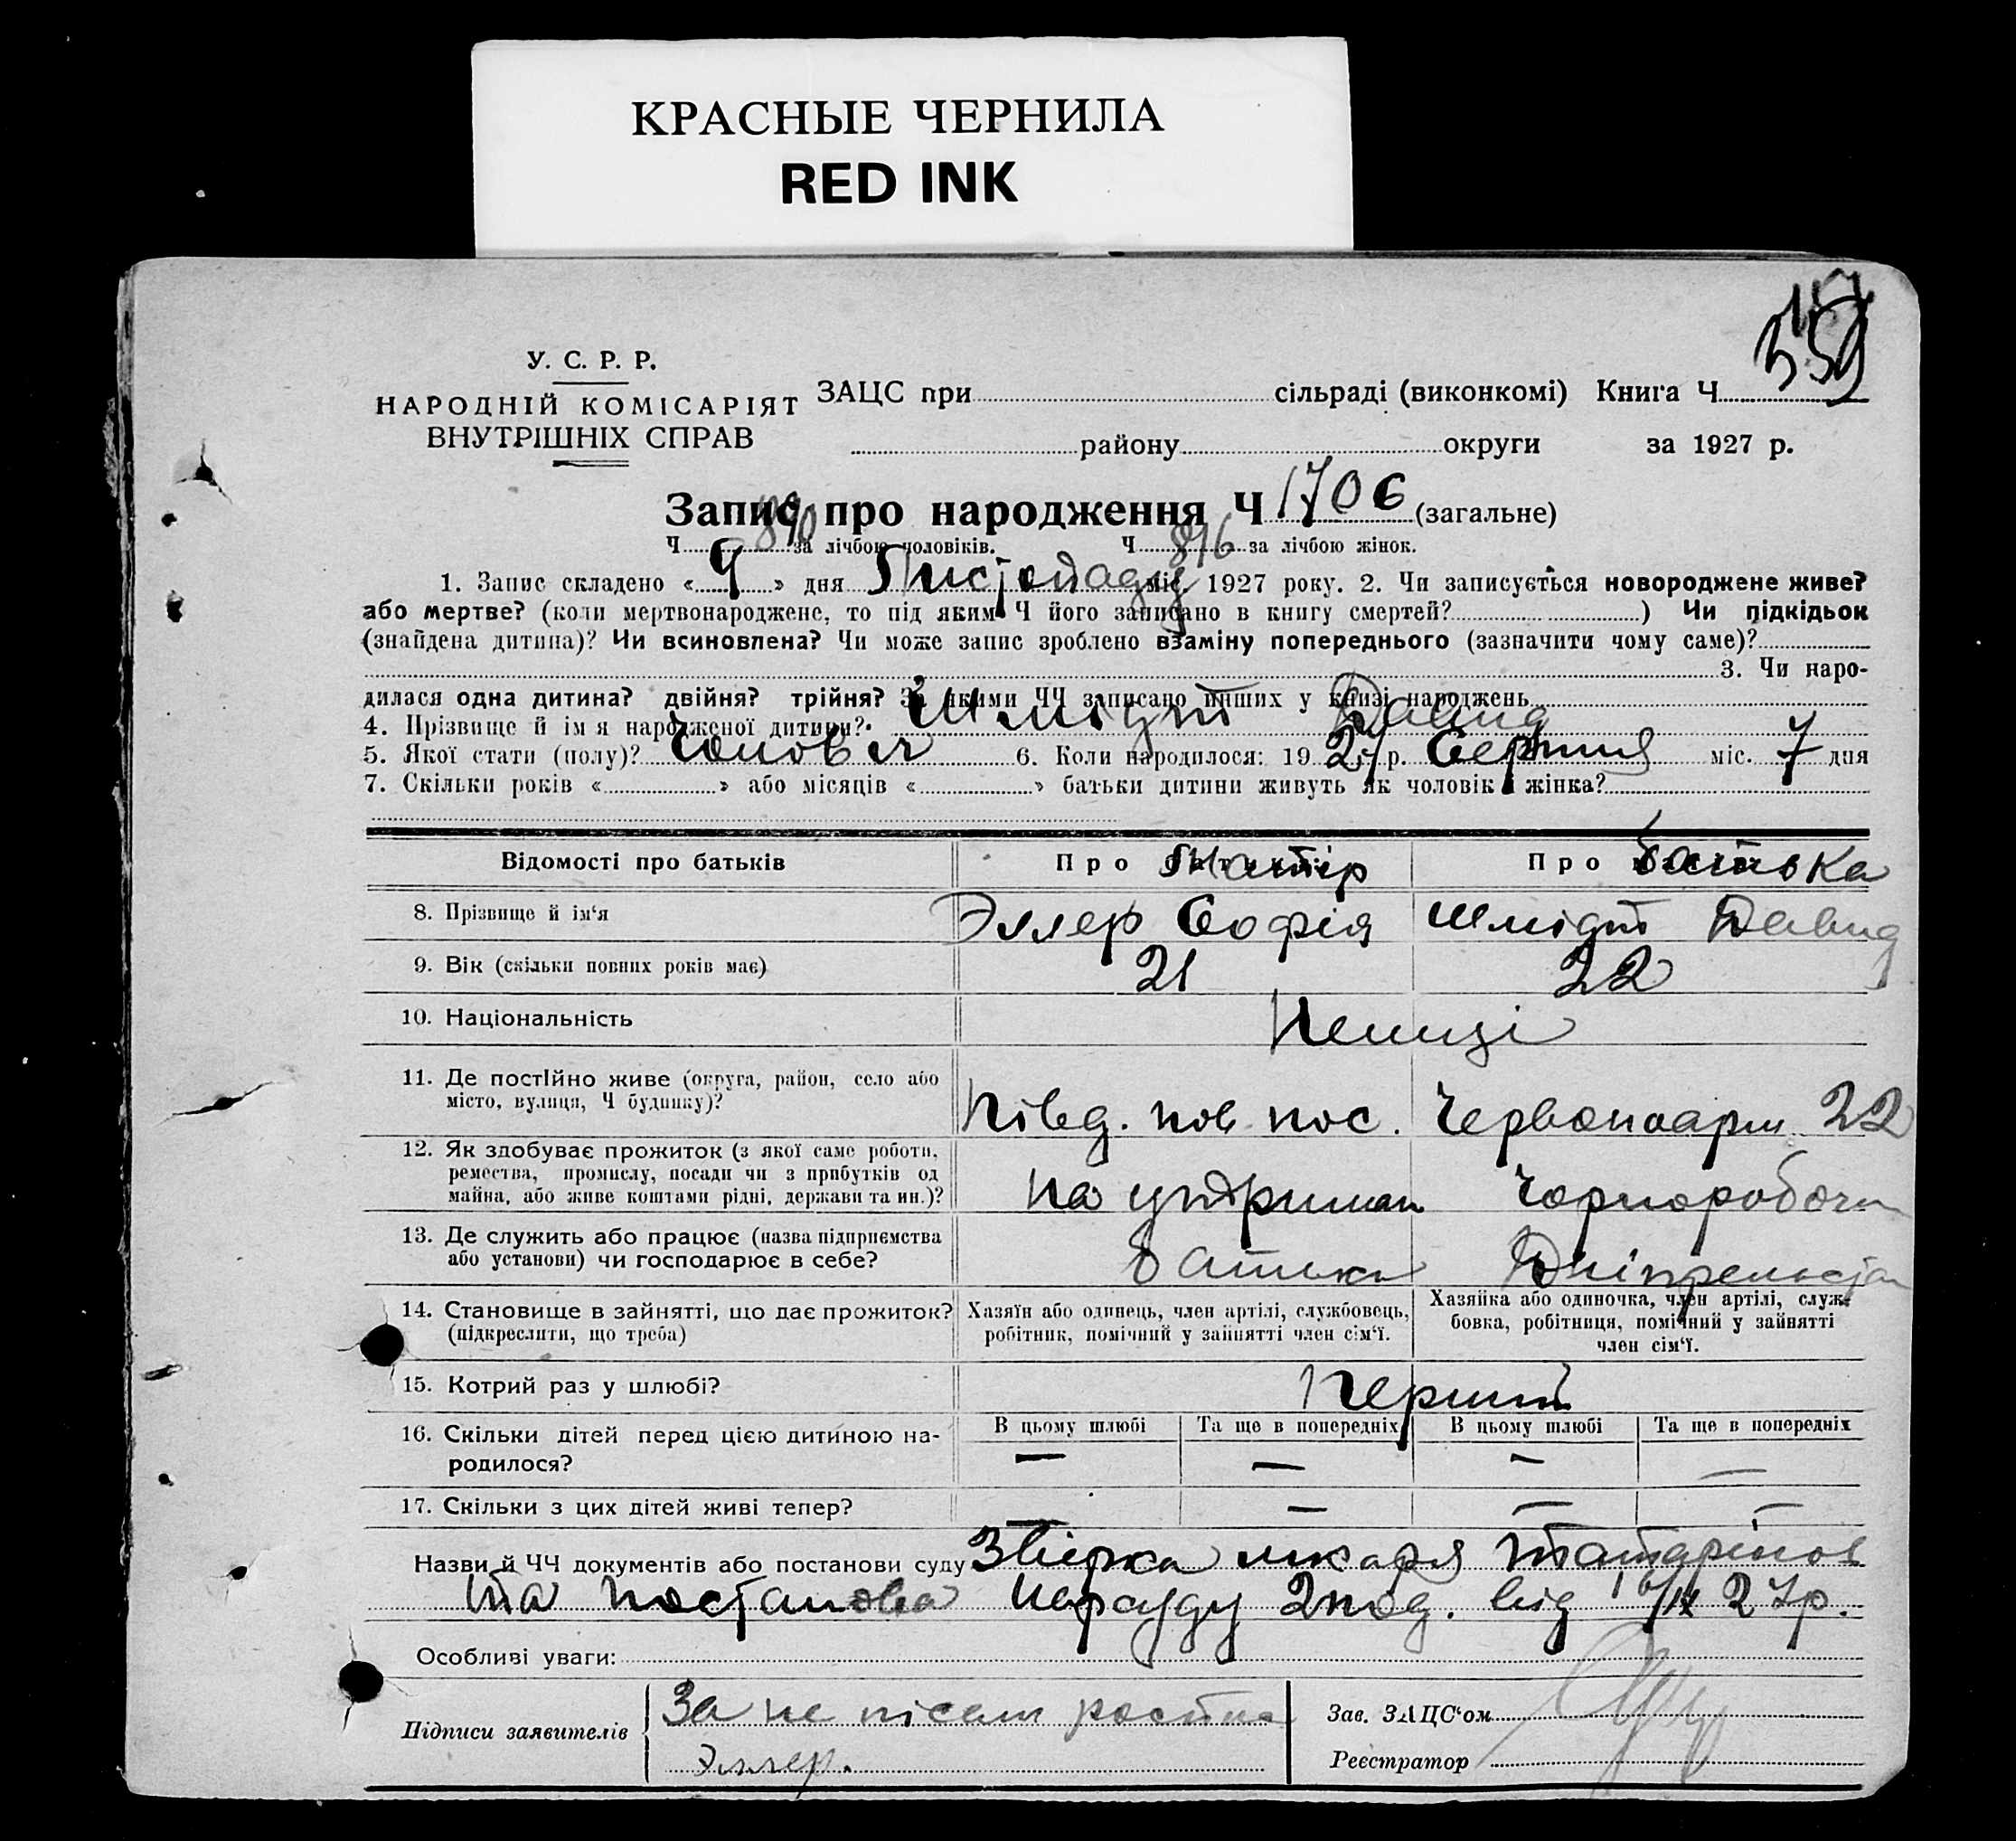 КРАСНЫЕ ЧЕРНИЛА
RED INK
359
У. С. Р. Р.
НАРОДНІЙ КОМІСАРІЯТ
ВНУТРІШНІХ СПРАВ
ЗАЦС при сільраді (виконкомі) Книга Ч
району округи за 1927 р.
Запис про народження Ч 1706 (загальне)
Ч 890 за лічбою чоловіків. Ч 816 за лічбою жінок.
1. Запис складено «4» дня Листопаду міс. 1927 року. 2. Чи записується новороджене живе?
або мертве? (коли мертвонароджене, то під яким Ч його записано в книгу смертей? ) Чи підкідьок
(знайдена дитина)? Чи всиновлена? Чи може запис зроблено взаміну попереднього (зазначити чому саме)?
3. Чи наро-
дилася одна дитина? двійня? трійня? За якими ЧЧ записано инших у книзі народжень
4. Прізвище й ім я народженої дитини? Шмідт Давид
5. Якої стати (полу)? Чолов'я 6. Коли народилося: 1927 р. Серпня міс. 7 дня
7. Скільки років « » або місяців « » батьки дитини живуть як чоловік і жінка?
Відомості про батьків Про матір Про батька
8. Прізвище й ім‘я Эллер Софія Шмідт Давид
9. Вік (скільки повних років має) 21 22
10. Національність Немці
11. Де постійно живе (округа, район, село або
місто, вулиця, Ч будинку)? Півд. пос. Червоноарм 22
12. Як здобуває прожиток (з якої саме роботи,
ремества, промислу, посади чи з прибутків од
майна, або живе коштами рідні, держави та ин.)? на утриман Чорноробочи
13. Де служить або працює (назва підприємства
або установи) чи господарює в себе? батька
14. Становище в зайнятті, що дає прожиток?
(підкреслити, що треба)
Хазяїн або одинець, член артілі, службовець,
робітник, помічний у зайнятті член сім‘ї.
Хазяйка або одиночка, член артілі, служ-
бовка, робітниця, помічний у зайнятті
член сім‘ї.
15. Котрий раз у шлюбі? Перший
16. Скільки дітей перед цією дитиною на-
родилося?
В цьому шлюбі Та ще в попередніх В цьому шлюбі Та ще в попередніх
— — — —
17. Скільки з цих дітей живі тепер? — — — —
Назви й ЧЧ документів або постанови суду лікаря Татарінов
та постанова Нарсуду від 27р.
Особливі уваги:
Підписи заявителів За не пісьм
Эллер.
Зав. ЗАЦС‘ом
Реєстратор